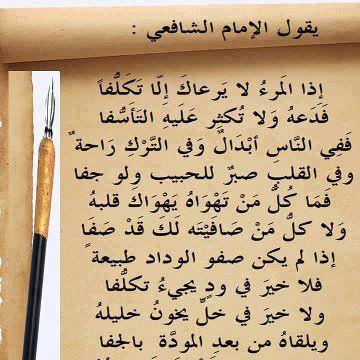 يقول الإمام الشافعي :
إذا المَرءُ لا يَرعاكَ إِلّا تَكَلُّفاً
فَدَعهُ وَلا تُكثِر عَلَيهِ التَأَسُّفا
فَفِي النَّاسِ أبْدَالٌ وَفي التَّرْكِ رَاحةٌ
وفي القلبِ صبرٌ للحبيب ولو جفا
فَمَا كُلُّ مَنْ تَهْوَاهُ يَهْوَاكَ قلبهُ
وَلا كلُّ مَنْ صَافَيْتَه لَكَ قَدْ صَفَا
إذا لم يكن صفو الوداد طبيعةً
فلا خيرَ في ودٍ يجيءُ تكلُّفا
ولا خيرَ في خلٍّ يخونُ خليلهُ
ويلقاهُ من بعدِ المودَّةِ بالجفا